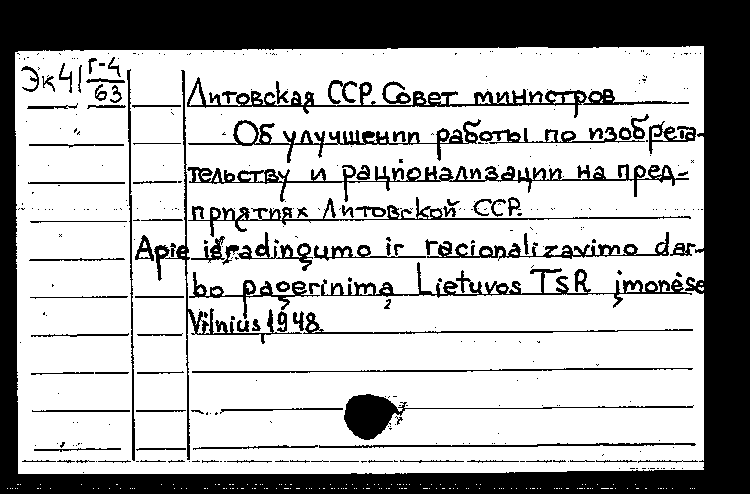 Эк41 Г-4/63
Литовская ССР. Совет министров
Об улучшении работы по изобрета-
тельству и рационализации на пред-
приятиях Литовской ССР.
Apie išradingumo ir racionalizavimo dar-
bo pagerinimą Lietuvos TSR įmonėse
Vilnius, 1948.